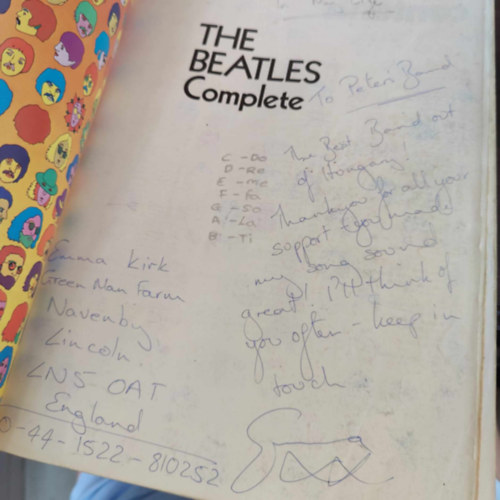 To
THE
BEATLES
Complete
To Peters Band
The Best Band out
of Hungary!
Thankyou for all your
support & you made
my song sound
great! I'll think of
you often - keep in
touch.
C - Do
D - Re
E - me
F - Fa
G - So
A - La
B - Ti
Emma Kirk
Green Man Farm
Navenby
Lincoln.
LN5 0AT
England
0-44-1522-810252
Emma